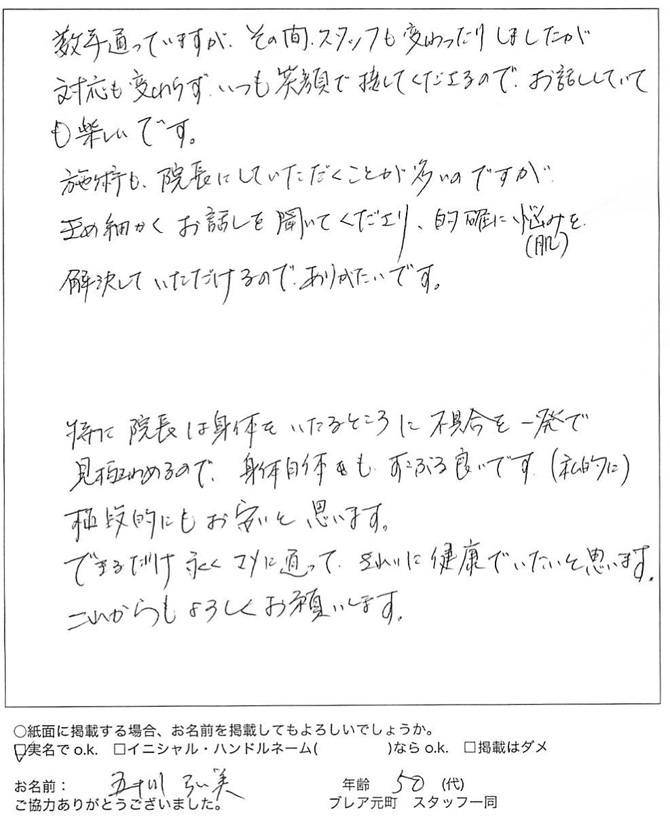 数年通っていますが、その間、スタッフも変わったりしましたが
対応も変わらず、いつも笑顔で接してくださるので、お話ししていて
も楽しいです。
施術も、院長にしていただくことが多いのですが
きめ細かく お話しを聞いてくださり、的確に 悩みを
(肌)
解決していただけるので、ありがたいです。
特に 院長は身体をいたるところに 不具合を一発で
見極めるので、身体自体も すこぶる良いです (私的に)
的にもお安いと思います。
できるだけ永くマメに通って、きれいに健康でいたいと思います。
これからもよろしくお願いします。
○紙面に掲載する場合、お名前を掲載してもよろしいでしょうか。
□実名でo.k. □イニシャル・ハンドルネーム( )ならo.k. □掲載はダメ
お名前： 五十川 弘美 年齢 50 (代)
ご協力ありがとうございました。 ブレア元町 スタッフ一同